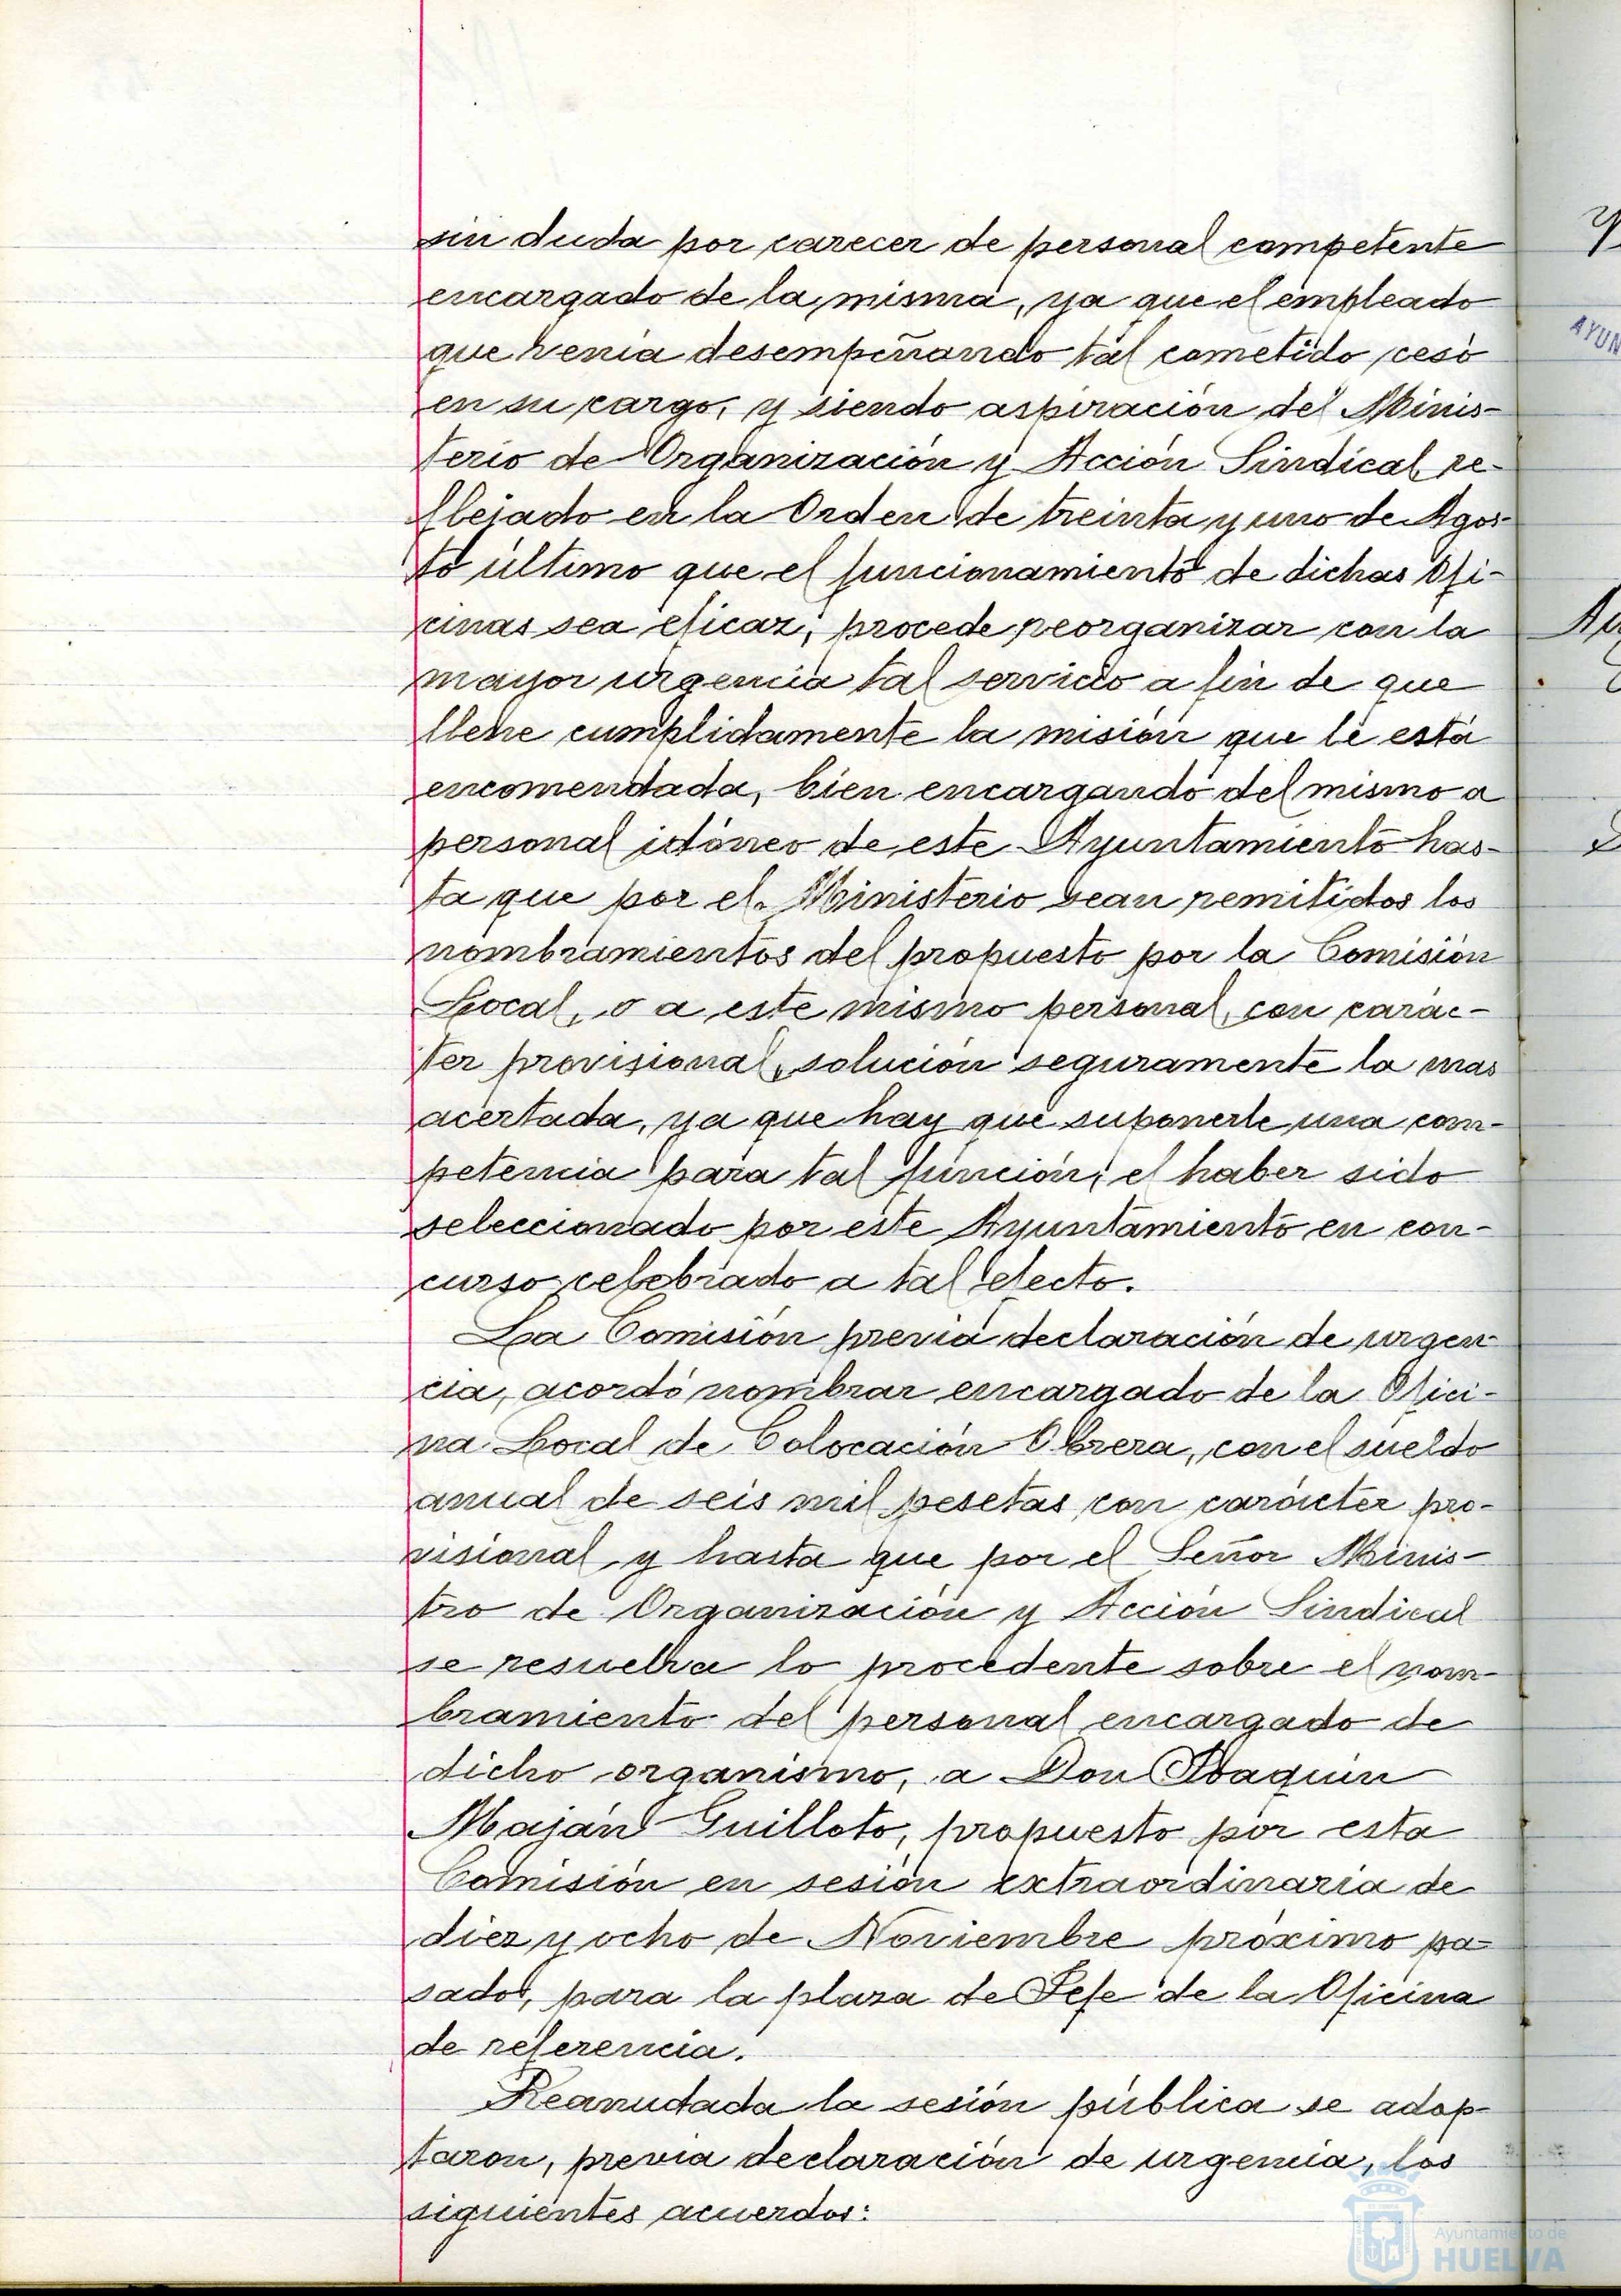 sin duda por carecer de personal competente
encargado de la misma, ya que el empleado
que venía desempeñando tal cometido cesó
en su cargo, y siendo aspiración del Minis-
terio de Organización y Acción Sindical re-
flejado en la Orden de treinta y uno de Agos-
to último que el funcionamiento de dichas Ofi-
cinas sea eficaz; procede reorganizar con la
mayor urgencia tal servicio a fin de que
llene cumplidamente la misión que le está
encomendada, bien encargando del mismo a
personal idóneo de este Ayuntamiento has-
ta que por el Ministerio sean remitidos los
nombramientos del propuesto por la Comisión
Local, o a este mismo personal, con carác-
ter provisional, solución seguramente la mas
acertada, ya que hay que suponerle una com-
petencia para tal función, el haber sido
seleccionado por este Ayuntamiento en con-
curso celebrado a tal efecto.
La Comisión previa declaración de urgen-
cia, acordó nombrar encargado de la Ofici-
na Local de Colocación Obrera, con el sueldo
anual de seis mil pesetas con carácter pro-
visional y hasta que por el Señor Minis-
tro de Organización y Acción Sindical
se resuelva lo procedente sobre el nom-
bramiento del personal encargado de
dicho organismo, a Don Joaquín
Maján Guilloto, propuesto por esta
Comisión en sesión extraordinaria de
diez y ocho de Noviembre próximo pa-
sado, para la plaza de Jefe de la Oficina
de referencia.
Reanudada la sesión pública se adop-
taron, previa declaración de urgencia, los
siguientes acuerdos:
AYUN
Ayuntamiento de
HUELVA